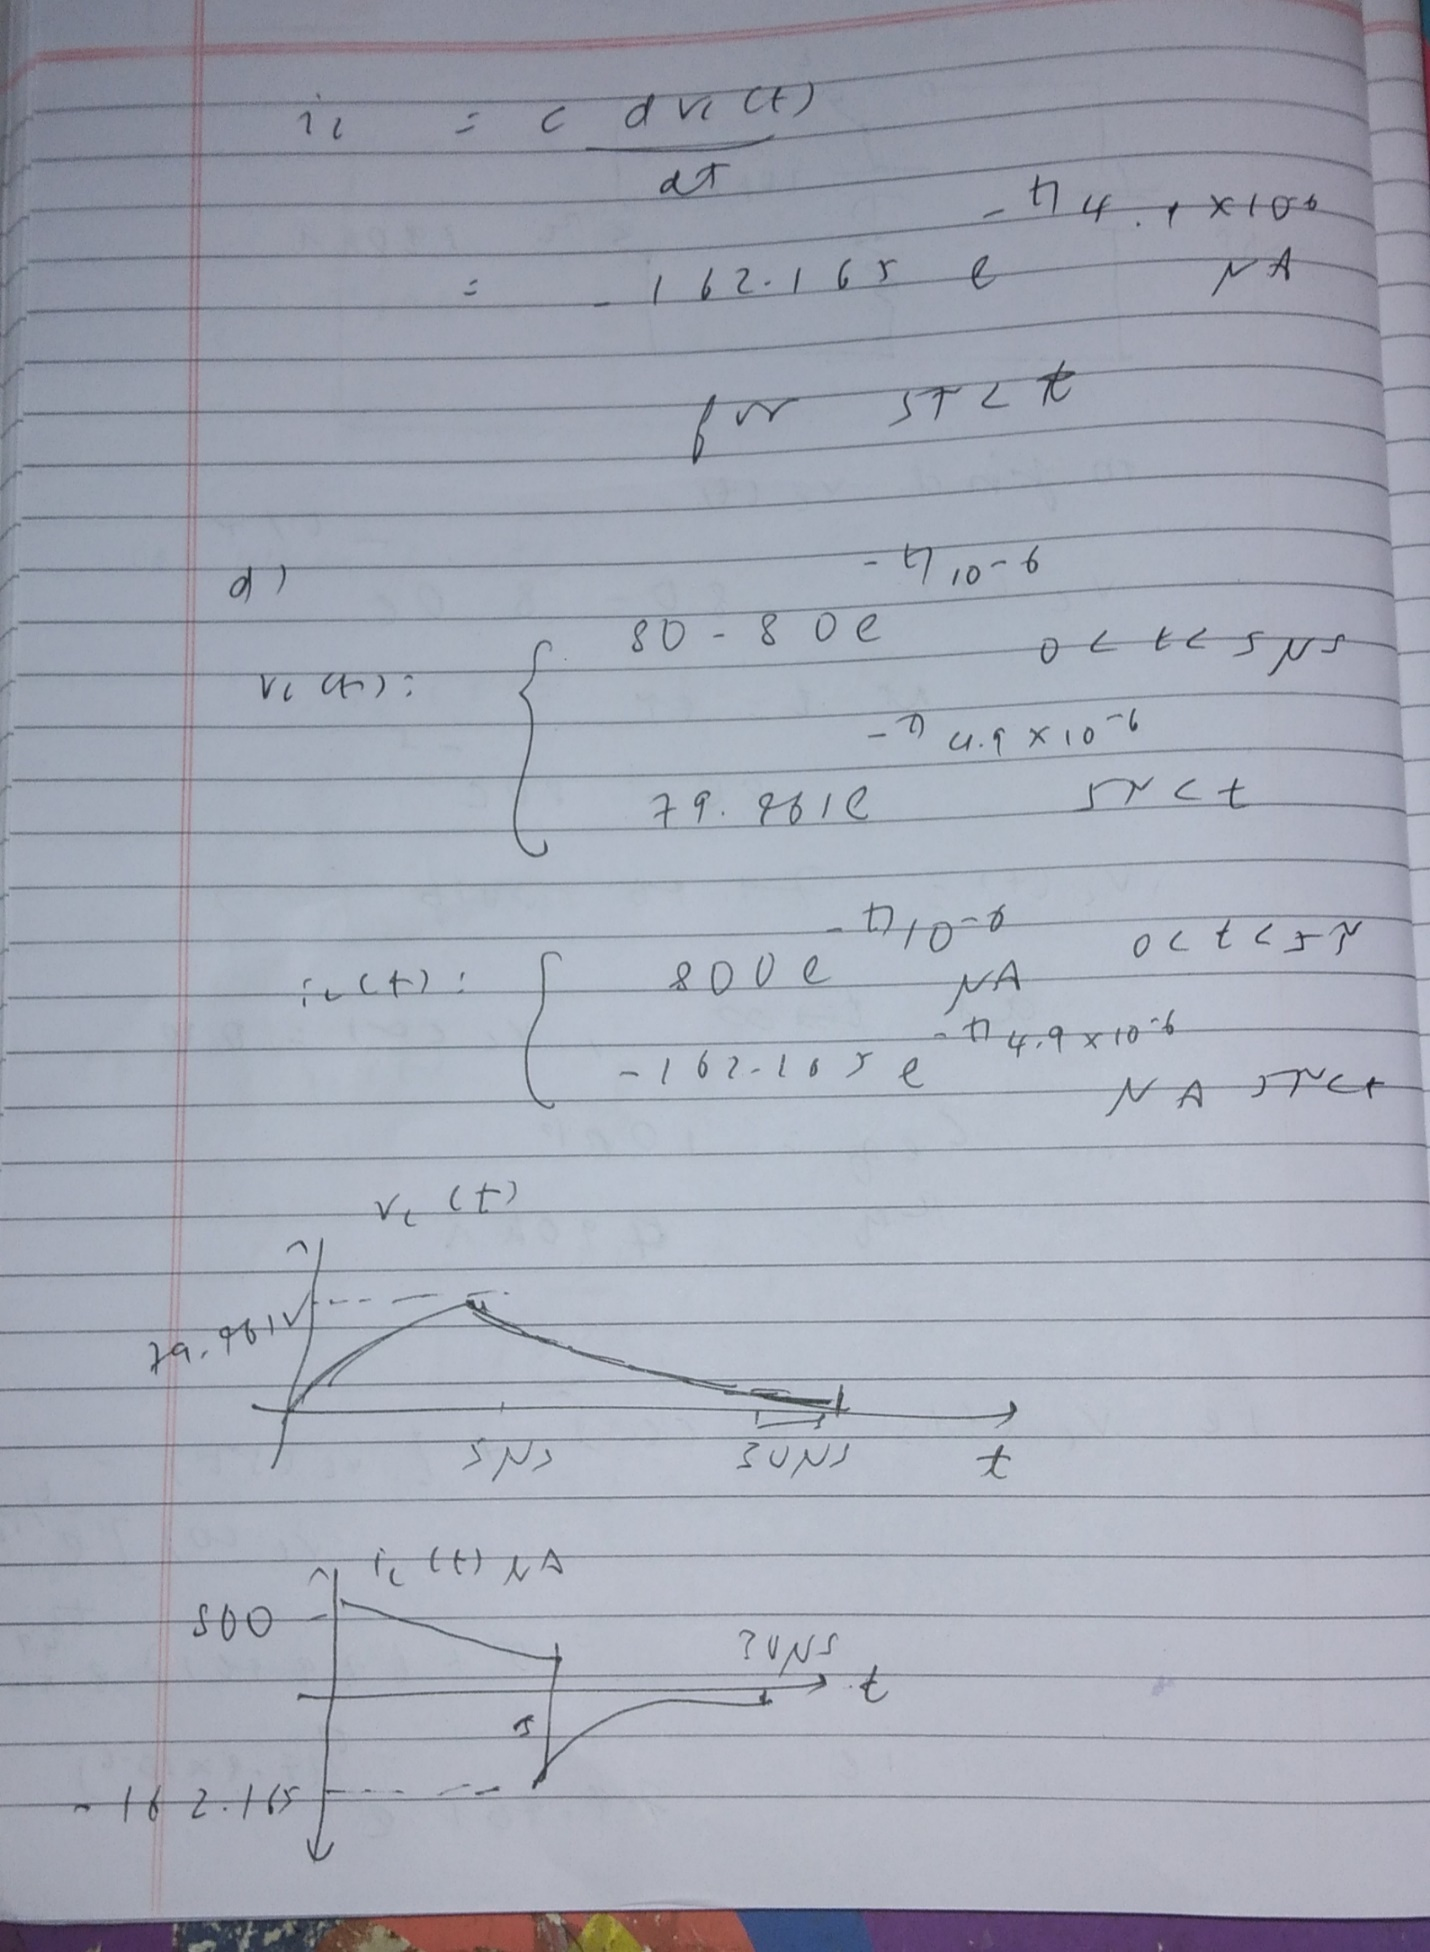 ic = c dvc(t)
dt
= -162.165 e -t/4.9×10-6 μA
for 5τ < t
d)
vc(t): { 80 - 80e -t/10-6 0 < t < 5μs
79.961e -t/4.9×10-6 5τ < t
ic(t): { 800e -t/10-6 μA 0 < t < 5τ
-162.165 e -t/4.9×10-6 μA 5τ < t
vc(t)
79.961V
5μs 30μs t
ic(t) μA
800
30μs t
5
-162.165